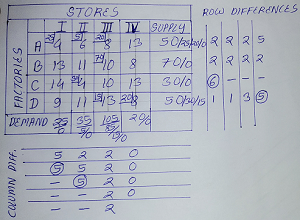 STORES ROW DIFFERENCES
I II III IV SUPPLY
FACTORIES
A 4 6 8 13 50/25/20/0 2 2 2 5
B 13 11 10 8 70/0 2 2 2 2
C 14 4 10 13 30/0 6 - - -
D 9 11 13 8 50/ 1 1 3 5
DEMAND 25 35 105 20/0
0 5/0
COLUMN DIFF.
5 2 2 0
5 5 2 0
- 5 2 0
- - 2 0
- - 2